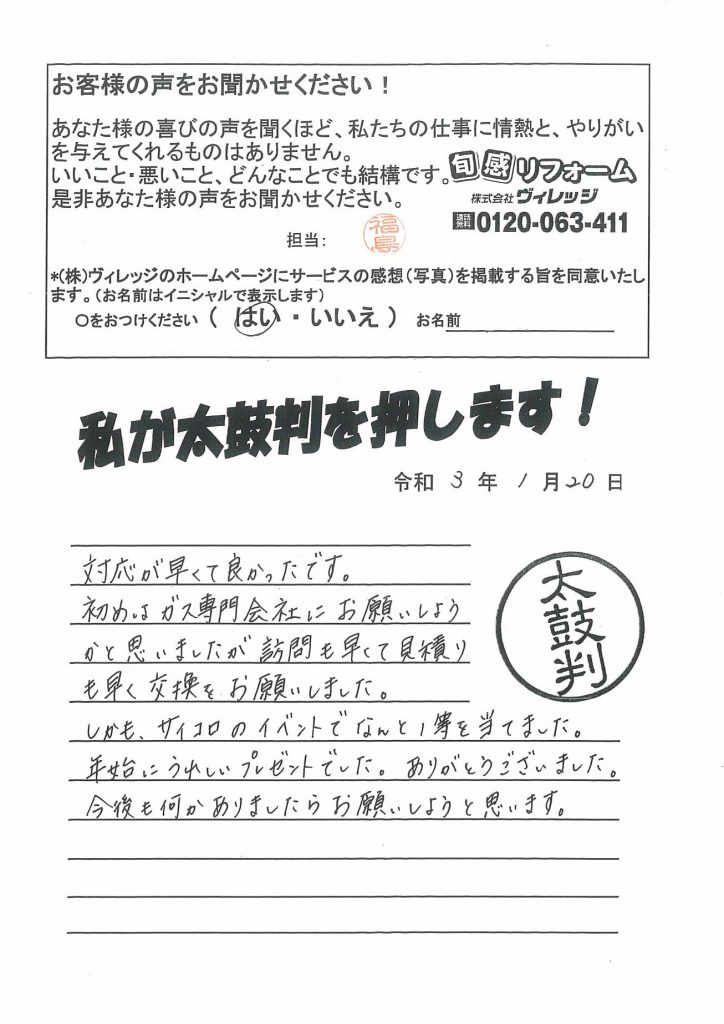 お客様の声をお聞かせください！
あなた様の喜びの声を聞くほど、私たちの仕事に情熱と、やりがい
を与えてくれるものはありません。
いいこと・悪いこと、どんなことでも結構です。
是非あなた様の声をお聞かせください。
旬感リフォーム
株式会社ヴィレッジ
通話無料 0120-063-411
担当： 福島
*(株)ヴィレッジのホームページにサービスの感想（写真）を掲載する旨を同意いたし
ます。（お名前はイニシャルで表示します）
○をおつけください （ はい ・ いいえ ） お名前
私が太鼓判を押します！
令和 3 年 1 月 20 日
対応が早くて良かったです。
初めはガス専門会社にお願いしよう
かと思いましたが訪問も早くて見積り
も早く交換をお願いしました。
しかも、サイコロのイベントでなんと1等を当てました。
年始にうれしいプレゼントでした。ありがとうございました。
今後も何かありましたらお願いしようと思います。
太鼓判